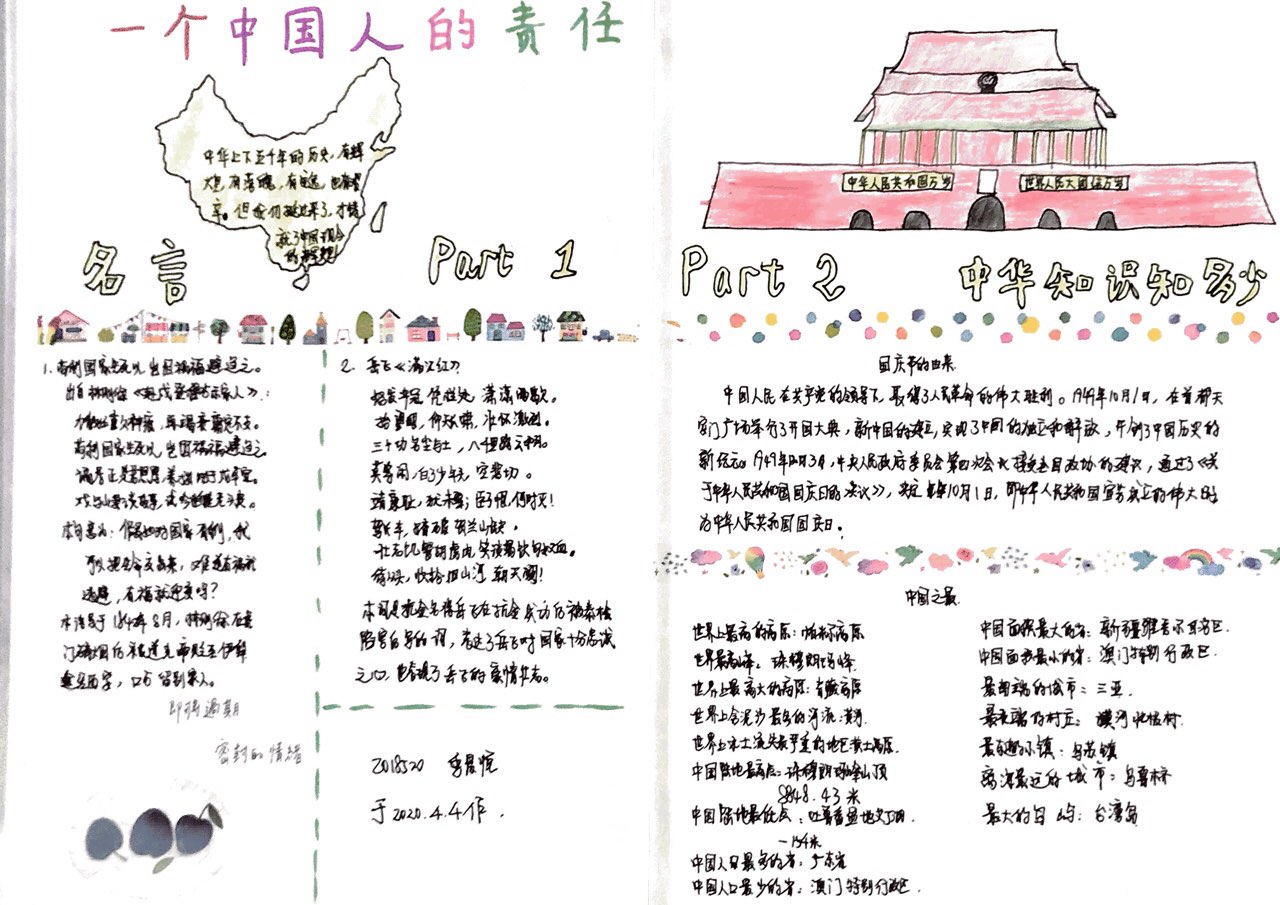 一个中国人的责任
中华上下五千年的历史,有辉
就了中国现今
的辉煌
名言 Part 1
1. 苟利国家生死以 岂因祸福避趋之。
出自林则徐《赴戍登程口占示家人》:
力微任重久神疲,再竭衰庸定不支。
苟利国家生死以,岂因祸福避趋之。
谪居正是君恩厚,养拙刚于戍卒宜。
戏与山妻谈故事,试吟断送老头皮。
逃避,有福就迎受吗?
即将过期
密封的情绪
2. 岳飞《满江红》
怒发冲冠 凭栏处 潇潇雨歇。
抬望眼,仰天长啸,壮怀激烈。
三十功名尘与土,八千里路云和月。
莫等闲,白了少年头,空悲切。
靖康耻,犹未雪;臣子恨,何时灭!
驾长车,踏破 贺兰山缺。
壮志饥餐胡虏肉,笑谈渴饮匈奴血。
待从头,收拾旧山河,朝天阙!
之心,也体现了岳飞的爱情怀。
2018520
于2020.4.4作.
中华人民共和国万岁
世界人民大团结万岁
Part 2 中华知识知多少
国庆节的由来.
中国人民在共产党的领导下,赢得了人民革命的伟大胜利。1949年10月1日,在首都天
安门广场举行了开国大典,新中国的建立,实现了中国的独立和解放,开创了中国历史的
新纪元。1949年12月3日,中央人民政府委员会第四次会议接受全国政协的建议,通过了《关
于中华人民共和国国庆日的决议》,决定每年10月1日,即中华人民共和国宣告成立的伟大日子
为中华人民共和国国庆日。
中国之最.
世界上最高的高原:帕米尔高原
世界最高峰:珠穆朗玛峰
世界上最高大的高原:青藏高原
世界上含泥沙最多的河流:黄河.
世界上水土流失最严重的地区:黄土高原.
中国陆地最高点:珠穆朗玛峰山顶
8848.43米
中国陆地最低点:吐鲁番盆地艾丁湖.
-154米
中国人口最多的省:广东省
中国人口最少的省:澳门特别行政区.
中国面积最大的省:新疆维吾尔自治区.
中国面积最小的省:澳门特别行政区.
最南端的城市:三亚.
最北端的村庄:漠河北极村.
最东边的小镇:乌苏镇
离海最远的城市:乌鲁木齐
最大的岛屿:台湾岛